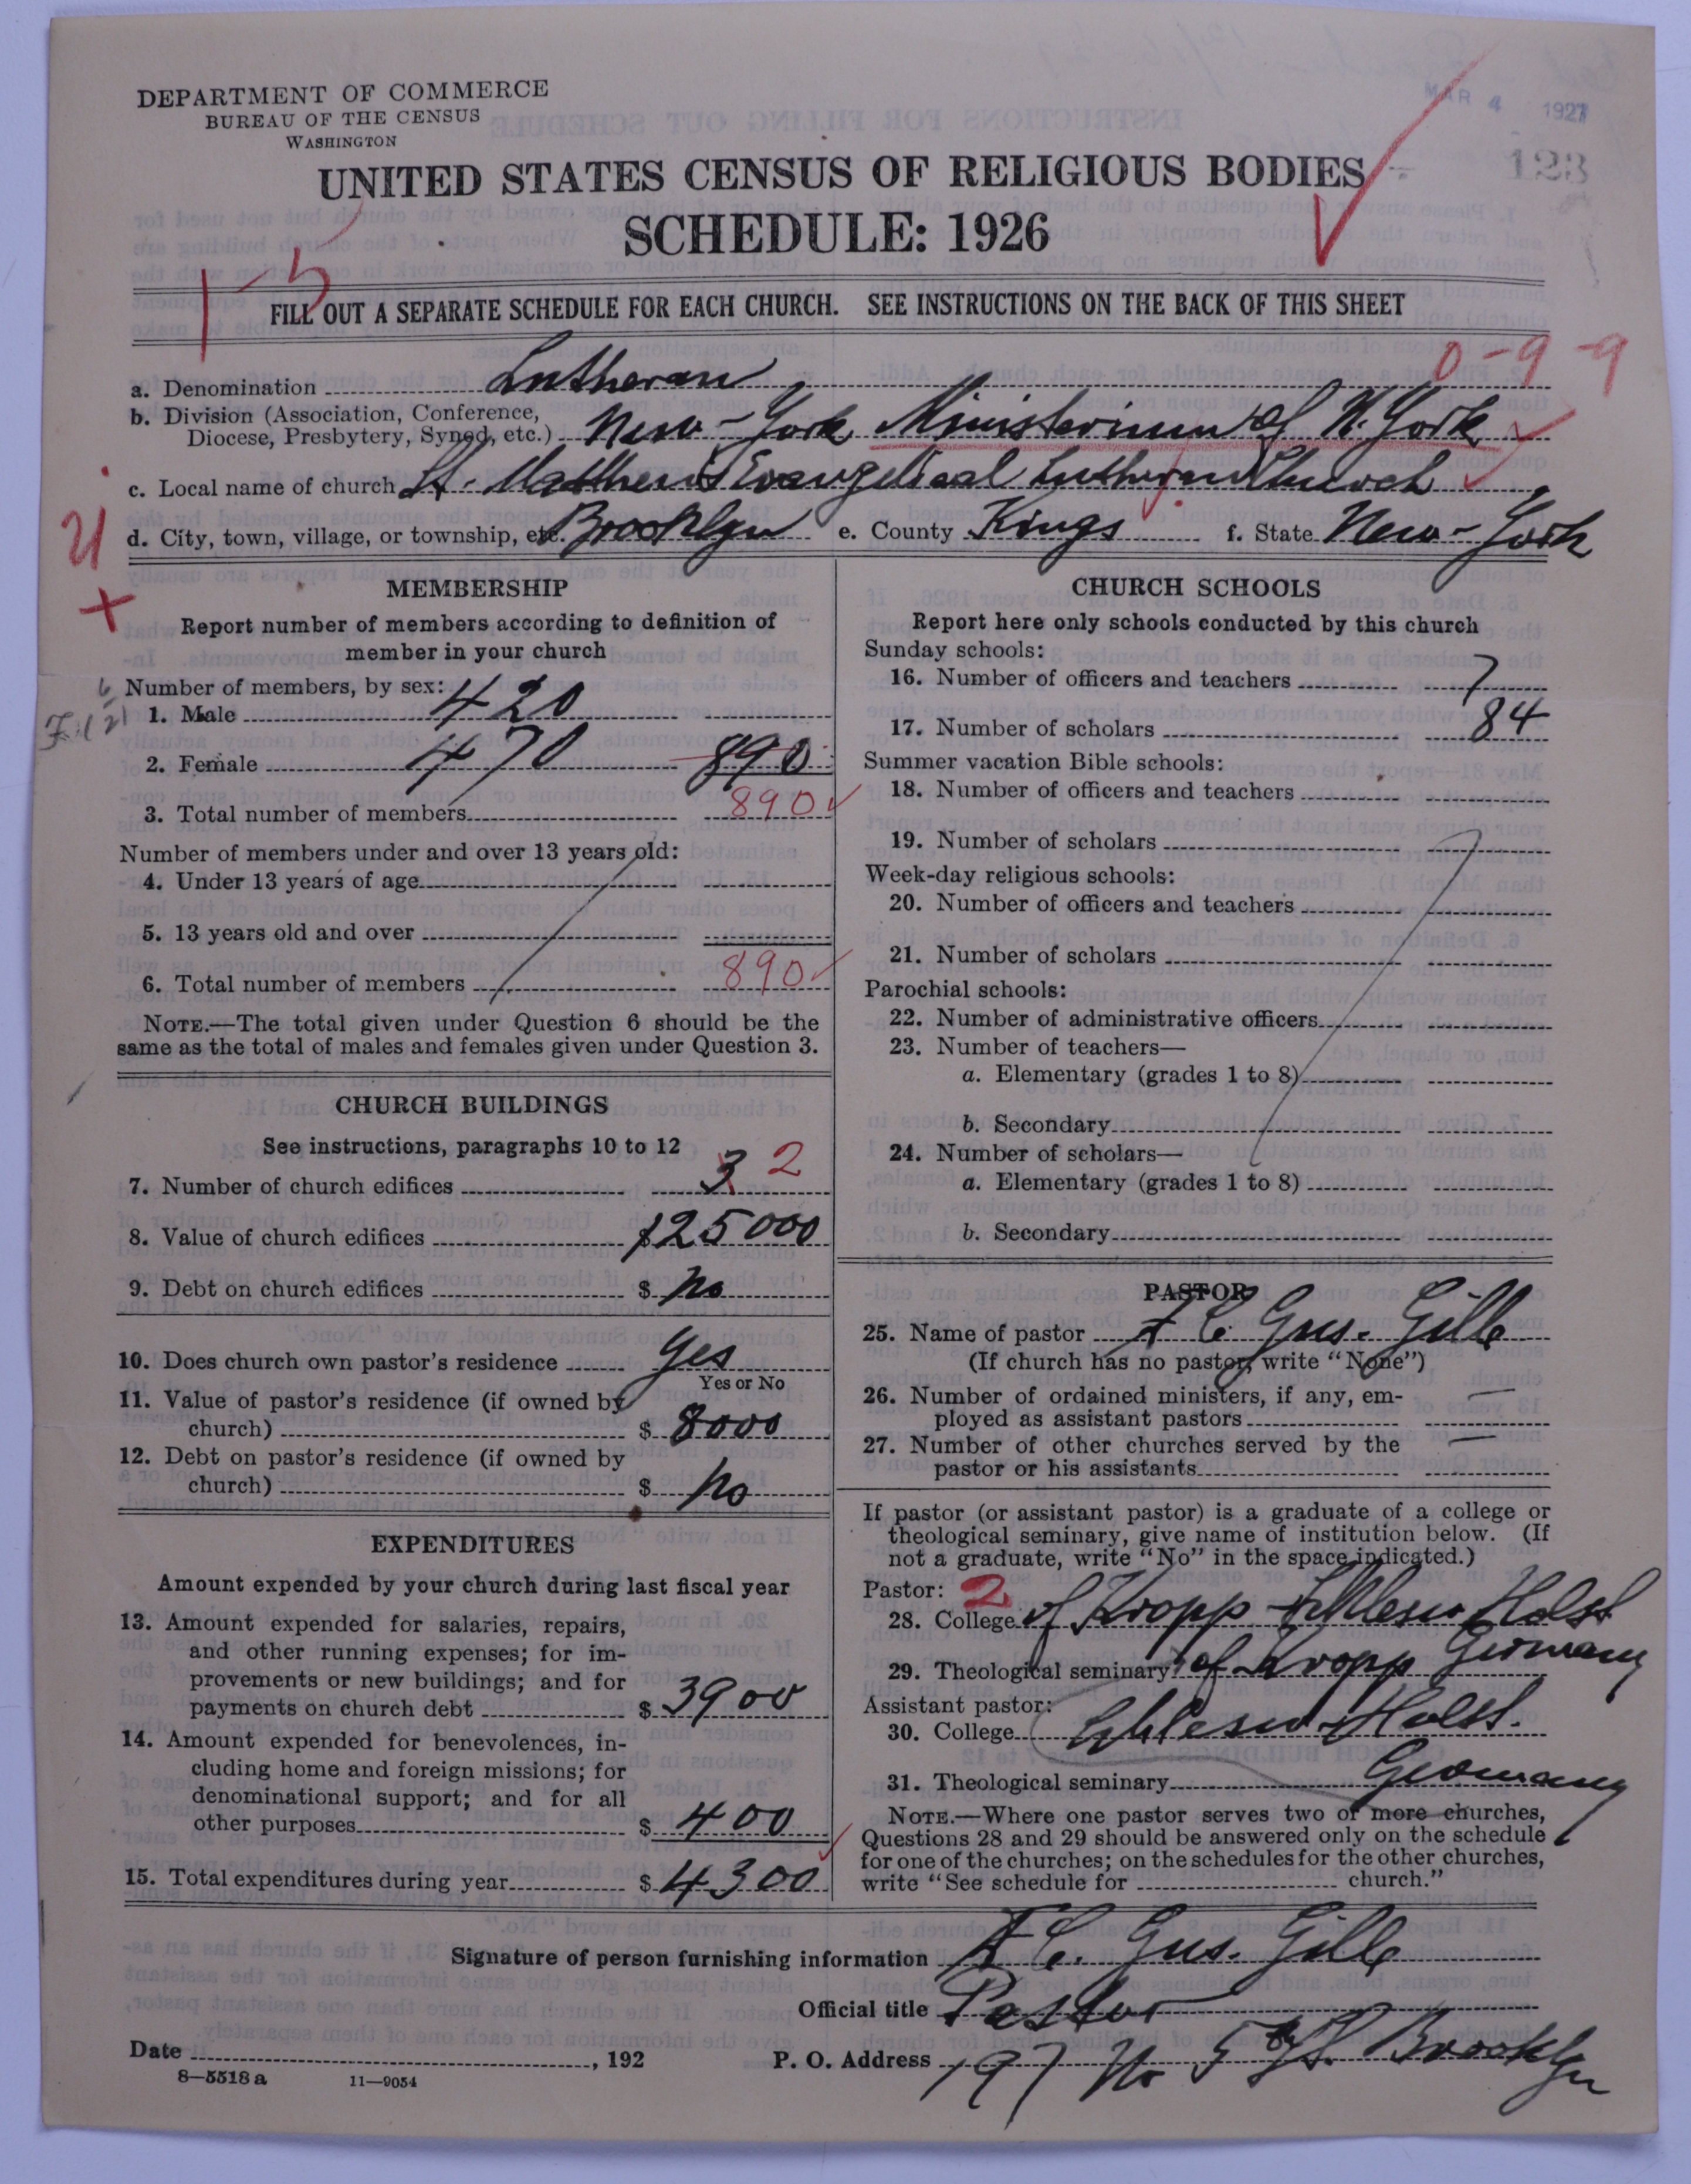 DEPARTMENT OF COMMERCE
BUREAU OF THE CENSUS
WASHINGTON
MAR 4 1927
123
UNITED STATES CENSUS OF RELIGIOUS BODIES
SCHEDULE: 1926
FILL OUT A SEPARATE SCHEDULE FOR EACH CHURCH. SEE INSTRUCTIONS ON THE BACK OF THIS SHEET
0-9-9
a. Denomination Lutheran
b. Division (Association, Conference,
Diocese, Presbytery, Synod, etc.) New-York Ministerium of N. York
c. Local name of church St. Matthew's Evangelical Lutheran Church
d. City, town, village, or township, etc. Brooklyn e. County Kings f. State New-York
MEMBERSHIP
Report number of members according to definition of
member in your church
Number of members, by sex:
1. Male 420
2. Female 470 890
3. Total number of members 890
Number of members under and over 13 years old:
4. Under 13 years of age
5. 13 years old and over
6. Total number of members 890
NOTE.—The total given under Question 6 should be the
same as the total of males and females given under Question 3.
CHURCH BUILDINGS
See instructions, paragraphs 10 to 12
7. Number of church edifices 3 2
8. Value of church edifices 125000
9. Debt on church edifices $ no
10. Does church own pastor's residence Yes
Yes or No
11. Value of pastor's residence (if owned by
church) $ 8000
12. Debt on pastor's residence (if owned by
church) $ no
EXPENDITURES
Amount expended by your church during last fiscal year
13. Amount expended for salaries, repairs,
and other running expenses; for im-
provements or new buildings; and for
payments on church debt $ 3900
14. Amount expended for benevolences, in-
cluding home and foreign missions; for
denominational support; and for all
other purposes $ 400
15. Total expenditures during year $ 4300
CHURCH SCHOOLS
Report here only schools conducted by this church
Sunday schools:
16. Number of officers and teachers 7
17. Number of scholars 84
Summer vacation Bible schools:
18. Number of officers and teachers
19. Number of scholars
Week-day religious schools:
20. Number of officers and teachers
21. Number of scholars
Parochial schools:
22. Number of administrative officers
23. Number of teachers—
a. Elementary (grades 1 to 8)
b. Secondary
24. Number of scholars—
a. Elementary (grades 1 to 8)
b. Secondary
PASTOR
25. Name of pastor F C. Gus. Gille
(If church has no pastor, write "None")
26. Number of ordained ministers, if any, em-
ployed as assistant pastors —
27. Number of other churches served by the
pastor or his assistants —
If pastor (or assistant pastor) is a graduate of a college or
theological seminary, give name of institution below. (If
not a graduate, write "No" in the space indicated.)
Pastor: 2
28. College of Kropp Schlesw Holst
Germany
29. Theological seminary of Kropp
Assistant pastor:
30. College Schlesw-Holst.
31. Theological seminary Germany
NOTE.—Where one pastor serves two or more churches,
Questions 28 and 29 should be answered only on the schedule
for one of the churches; on the schedules for the other churches,
write "See schedule for church."
Signature of person furnishing information F C. Gus. Gille
Official title Pastor
Date , 192 P. O. Address 197 No 5th St. Brooklyn
8—5518 a 11—9054